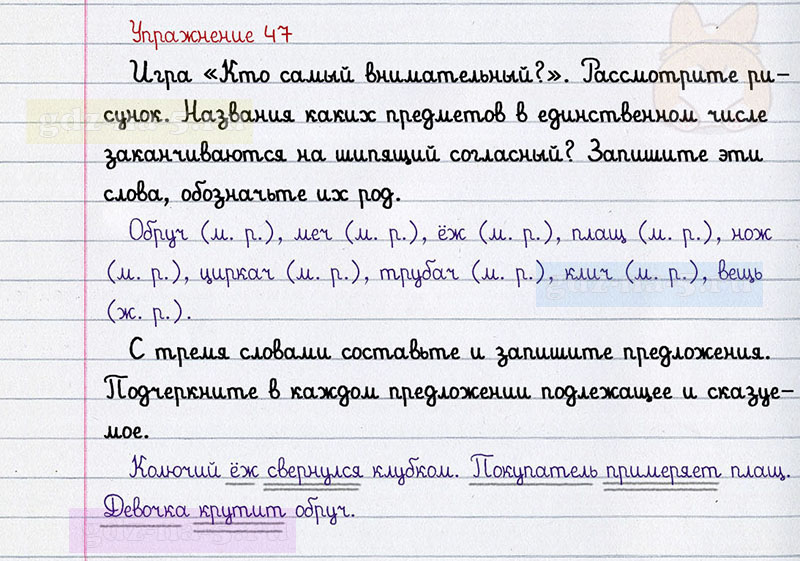 Упражнение 47
Игра «Кто самый внимательный?». Рассмотрите ри-
сунок. Названия каких предметов в единственном числе
заканчиваются на шипящий согласный? Запишите эти
слова, обозначьте их род.
Обруч (м. р.), меч (м. р.), ёж (м. р.), плащ (м. р.), нож
(м. р.), циркач (м. р.), трубач (м. р.), клич (м. р.), вещь
(ж. р.).
С тремя словами составьте и запишите предложения.
Подчеркните в каждом предложении подлежащее и сказуе-
мое.
Колючий ёж свернулся клубком. Покупатель примеряет плащ.
Девочка крутит обруч.